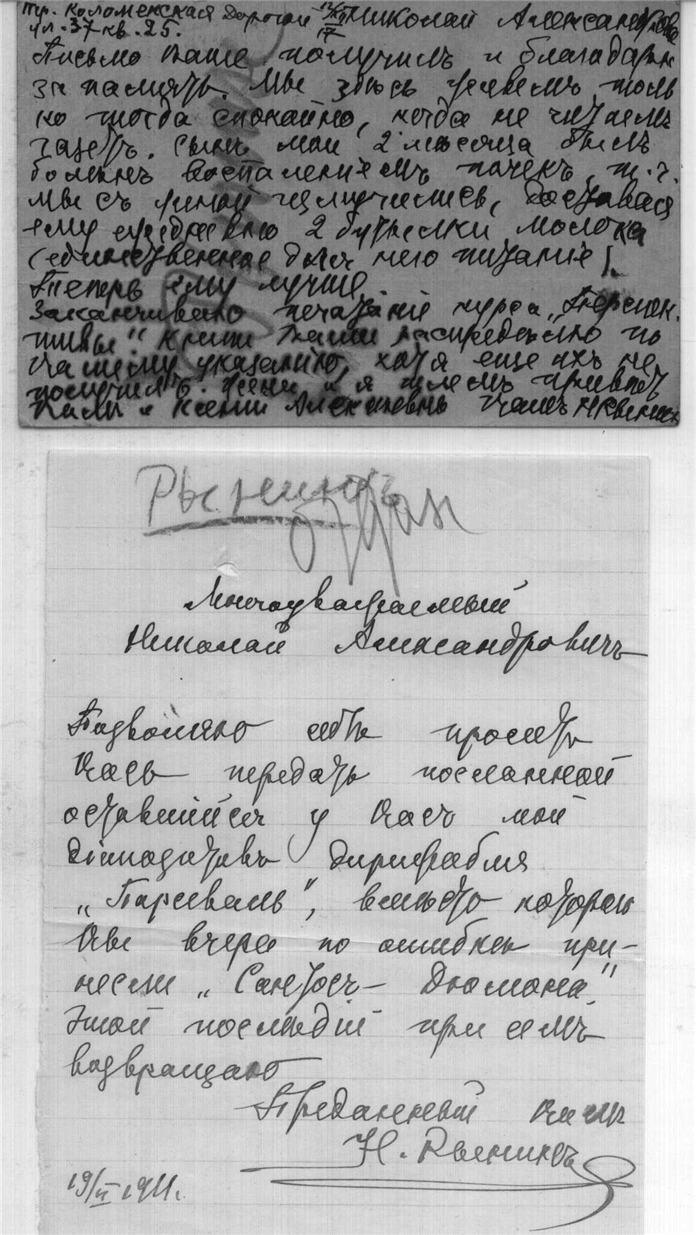 Коломенская Дорогой Николай Александрович
ул. 37 кв. 25.
Письмо Ваше получилъ и благодарю
за память. Мы здѣсь живемъ толь
ко тогда спокойно, когда не читаемъ
газетъ. Сынъ мой 2 мѣсяца былъ
боленъ воспаленіемъ почекъ, т.ч.
мы съ женой измучились, доставая
ему ежедневно 2 бутылки молока
(единственное для него питаніе).
Теперь ему лучше.
Заканчиваю печатаніе курса „Перспек-
тивы". Книги Ваши распредѣлю по
Вашему указанію, хотя еще ихъ не
получилъ. и я шлемъ привѣтъ
Вамъ и Ксеніи Алексѣевнѣ Вашъ НРынинъ
Рынинъ
Многоуважаемый
Николай Александровичъ
Позволяю себѣ просить
Васъ передать посланной
оставшійся у Васъ мой
діапозитивъ дирижабля
„Парсеваль", вмѣсто котораго
Вы вчера по ошибкѣ при-
несли „Сантосъ-Дюмона."
Этой послѣдній при семъ
возвращаю
Преданный Вамъ
Н. Рынинъ
19/II 1911.